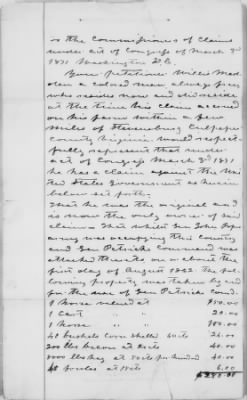 To the Commissioners of Claims
under act of Congress of March 3rd
1871 Washington D.C.
Your Petitioner Willis Mad
den a colored man always free
who resides now and did reside
at the time this claim accrued
on his farm within a few
miles of Stevensburg Culpeper
County Virginia would respect
fully represent that under
act of Congress March 3rd 1871
he has a claim against the Uni
ted States Government as herein
below set forth,
That he was the original and
is now the only owner of said
claim. That whilst Gen John Pope
army was occupying this County
and Gen Patricks Command was
attached thereto, on or about the
first day of August 1862 the fol-
lowing property was taken by and
for the use of Gen Patricks Comd.
1 horse valued at 150.00
1 cart " " 20.00
1 horse " " 100.00
40 bushels corn shelled 60cts 24.00
200 lbs bacon at 20cts 40.00
5000 lbs hay at 80cts per hundred 40.00
40 fowls at 15cts 6.00